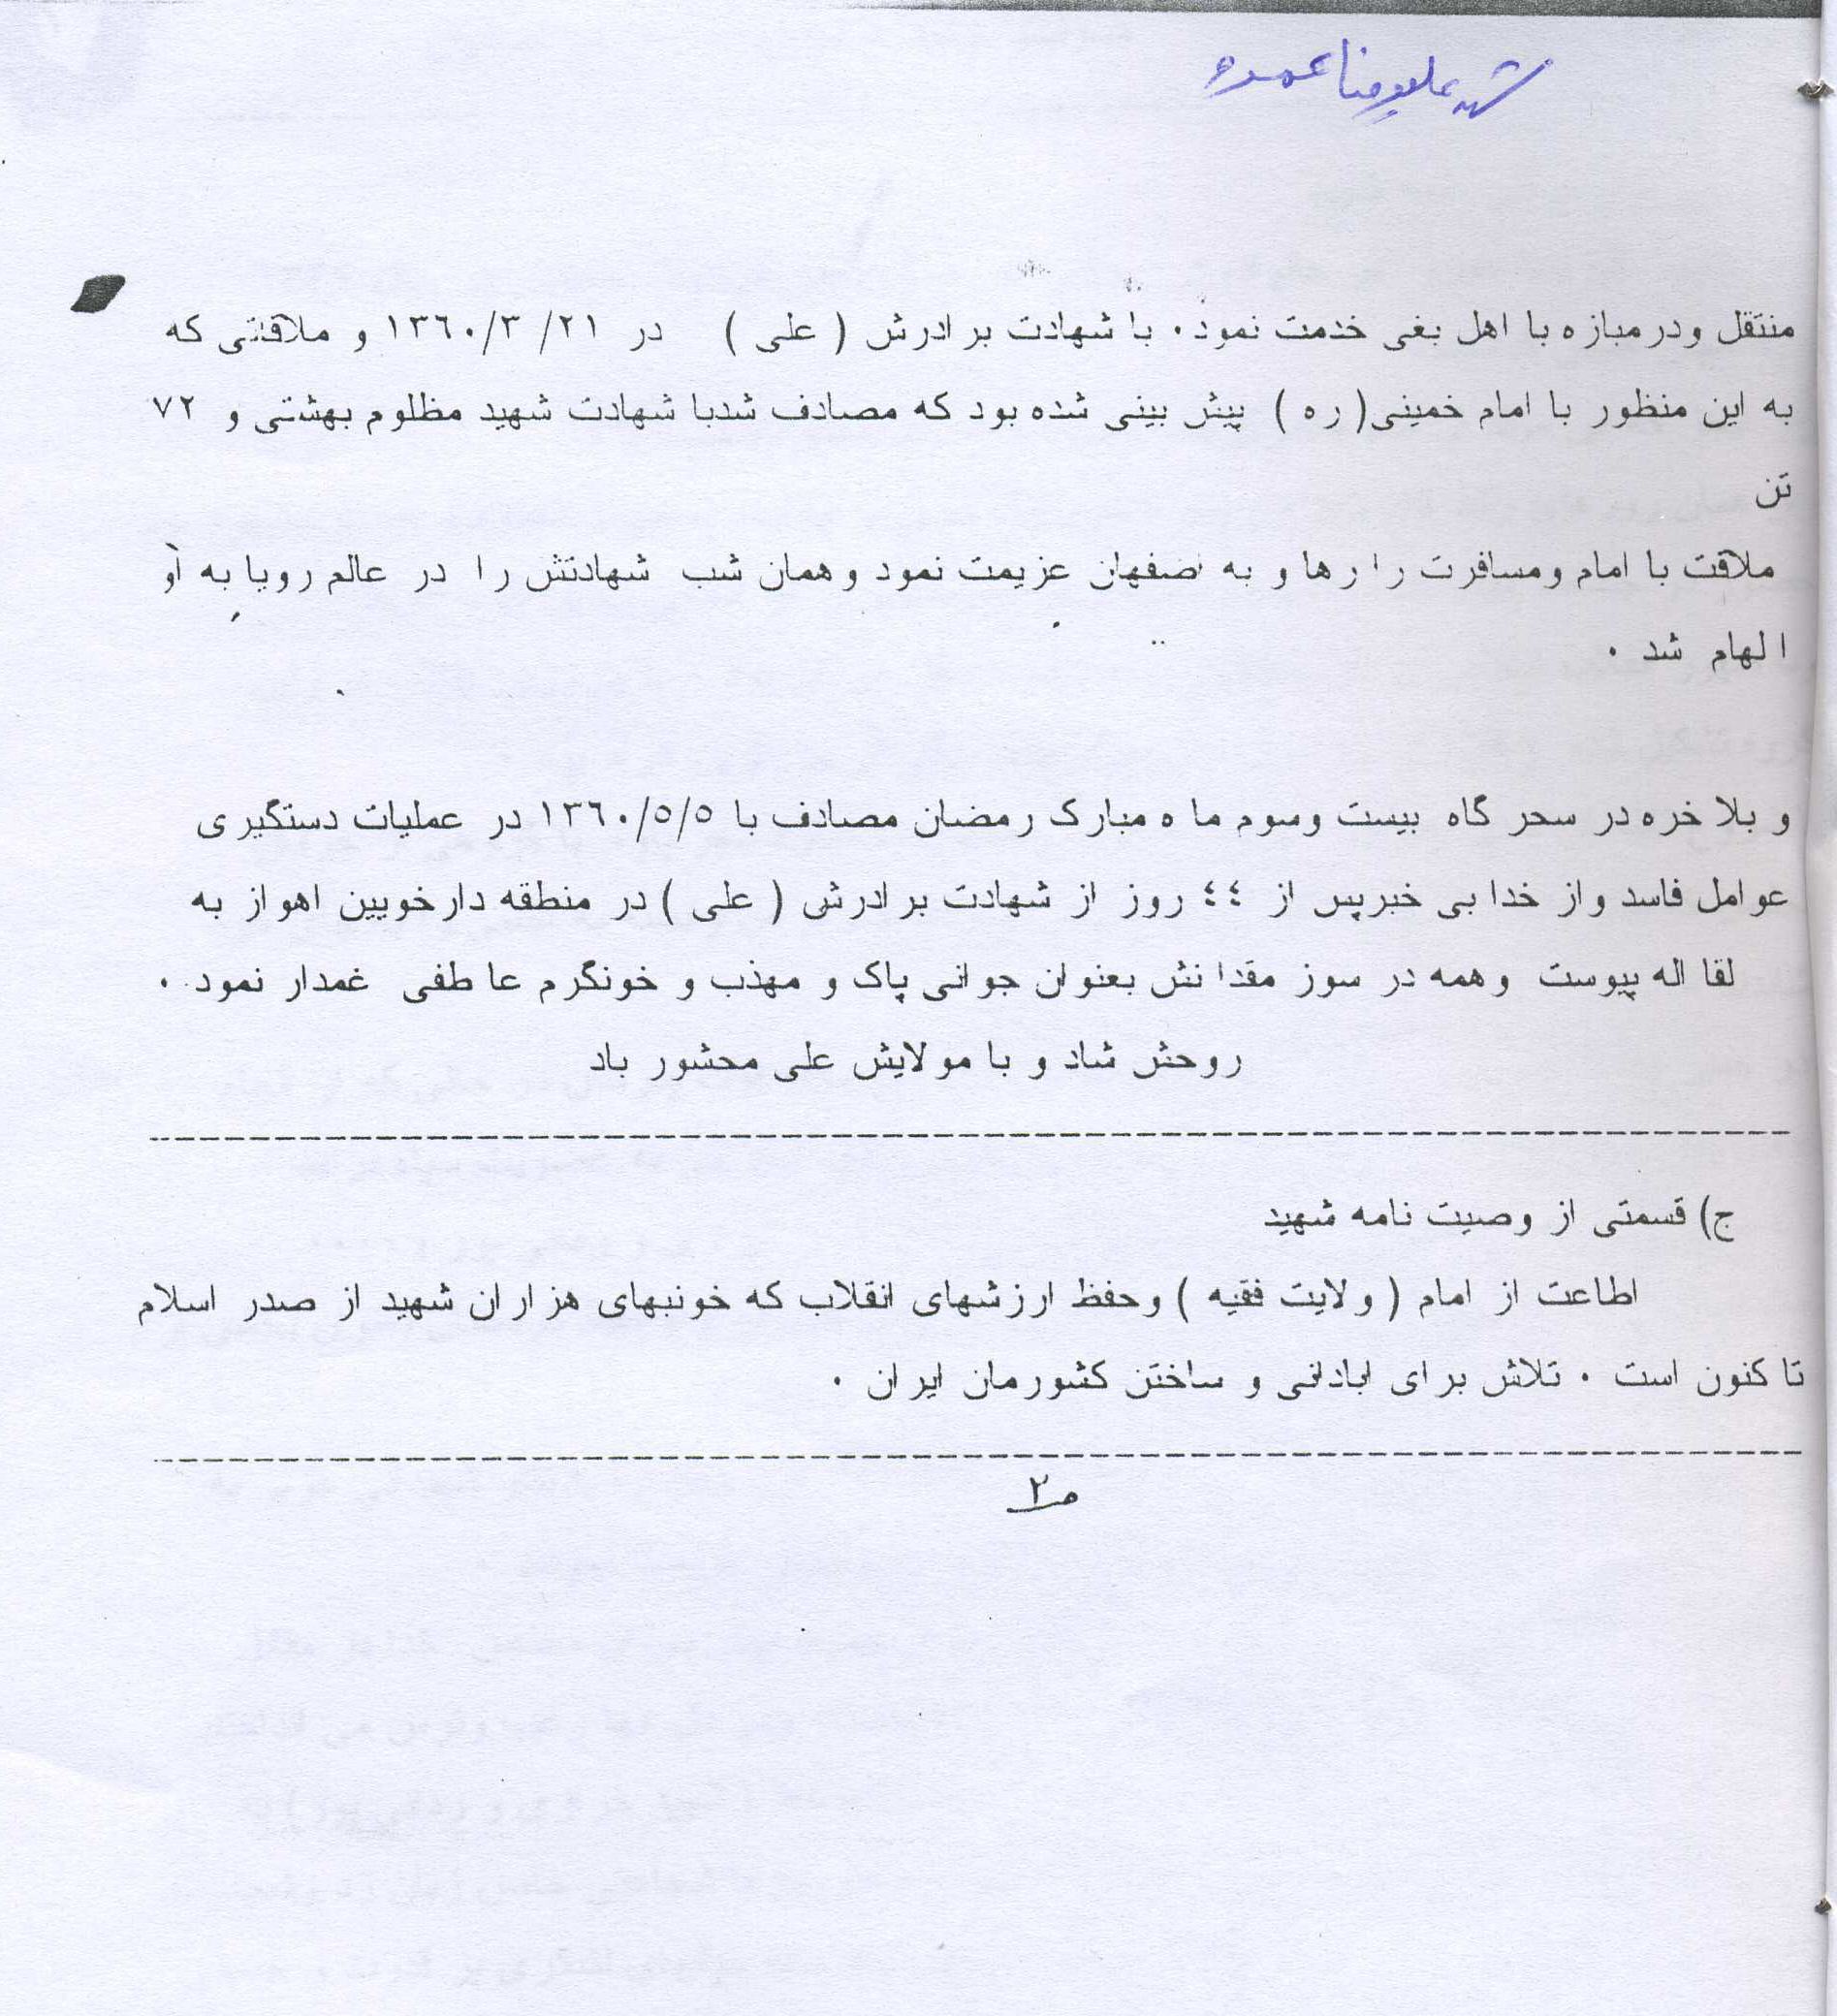 شهید علیرضا عمده
منتقل ودرمبازه با اهل بغی خدمت نمود. با شهادت برادرش ( علی ) در ٢١/ ١٣٦٠/٣ و ملاقتی که
به این منظور با امام خمینی(ره) پیش بینی شده بود که مصادف شدبا شهادت شهید مظلوم بهشتی و ٧٢
تن
ملاقت با امام ومسافرت را رها و به اصفهان عزیمت نمود وهمان شب شهادتش را در عالم رویا به او
الهام شد .
و بلاخره در سحر گاه بیست وسوم ماه مبارک رمضان مصادف با ١٣٦٠/٥/٥ در عملیات دستگیری
عوامل فاسد واز خدا بی خبرپس از ٤٤ روز از شهادت برادرش ( علی ) در منطقه دارخویین اهواز به
لقا اله پیوست وهمه در سوز مقدانش بعنوان جوانی پاک و مهذب و خونگرم عاطفی غمدار نمود .
روحش شاد و با مولایش علی محشور باد
ج) قسمتی از وصیت نامه شهید
اطاعت از امام ( ولایت فقیه ) وحفظ ارزشهای انقلاب که خونبهای هزاران شهید از صدر اسلام
تا کنون است . تلاش برای ابادانی و ساختن کشورمان ایران .
ص٢